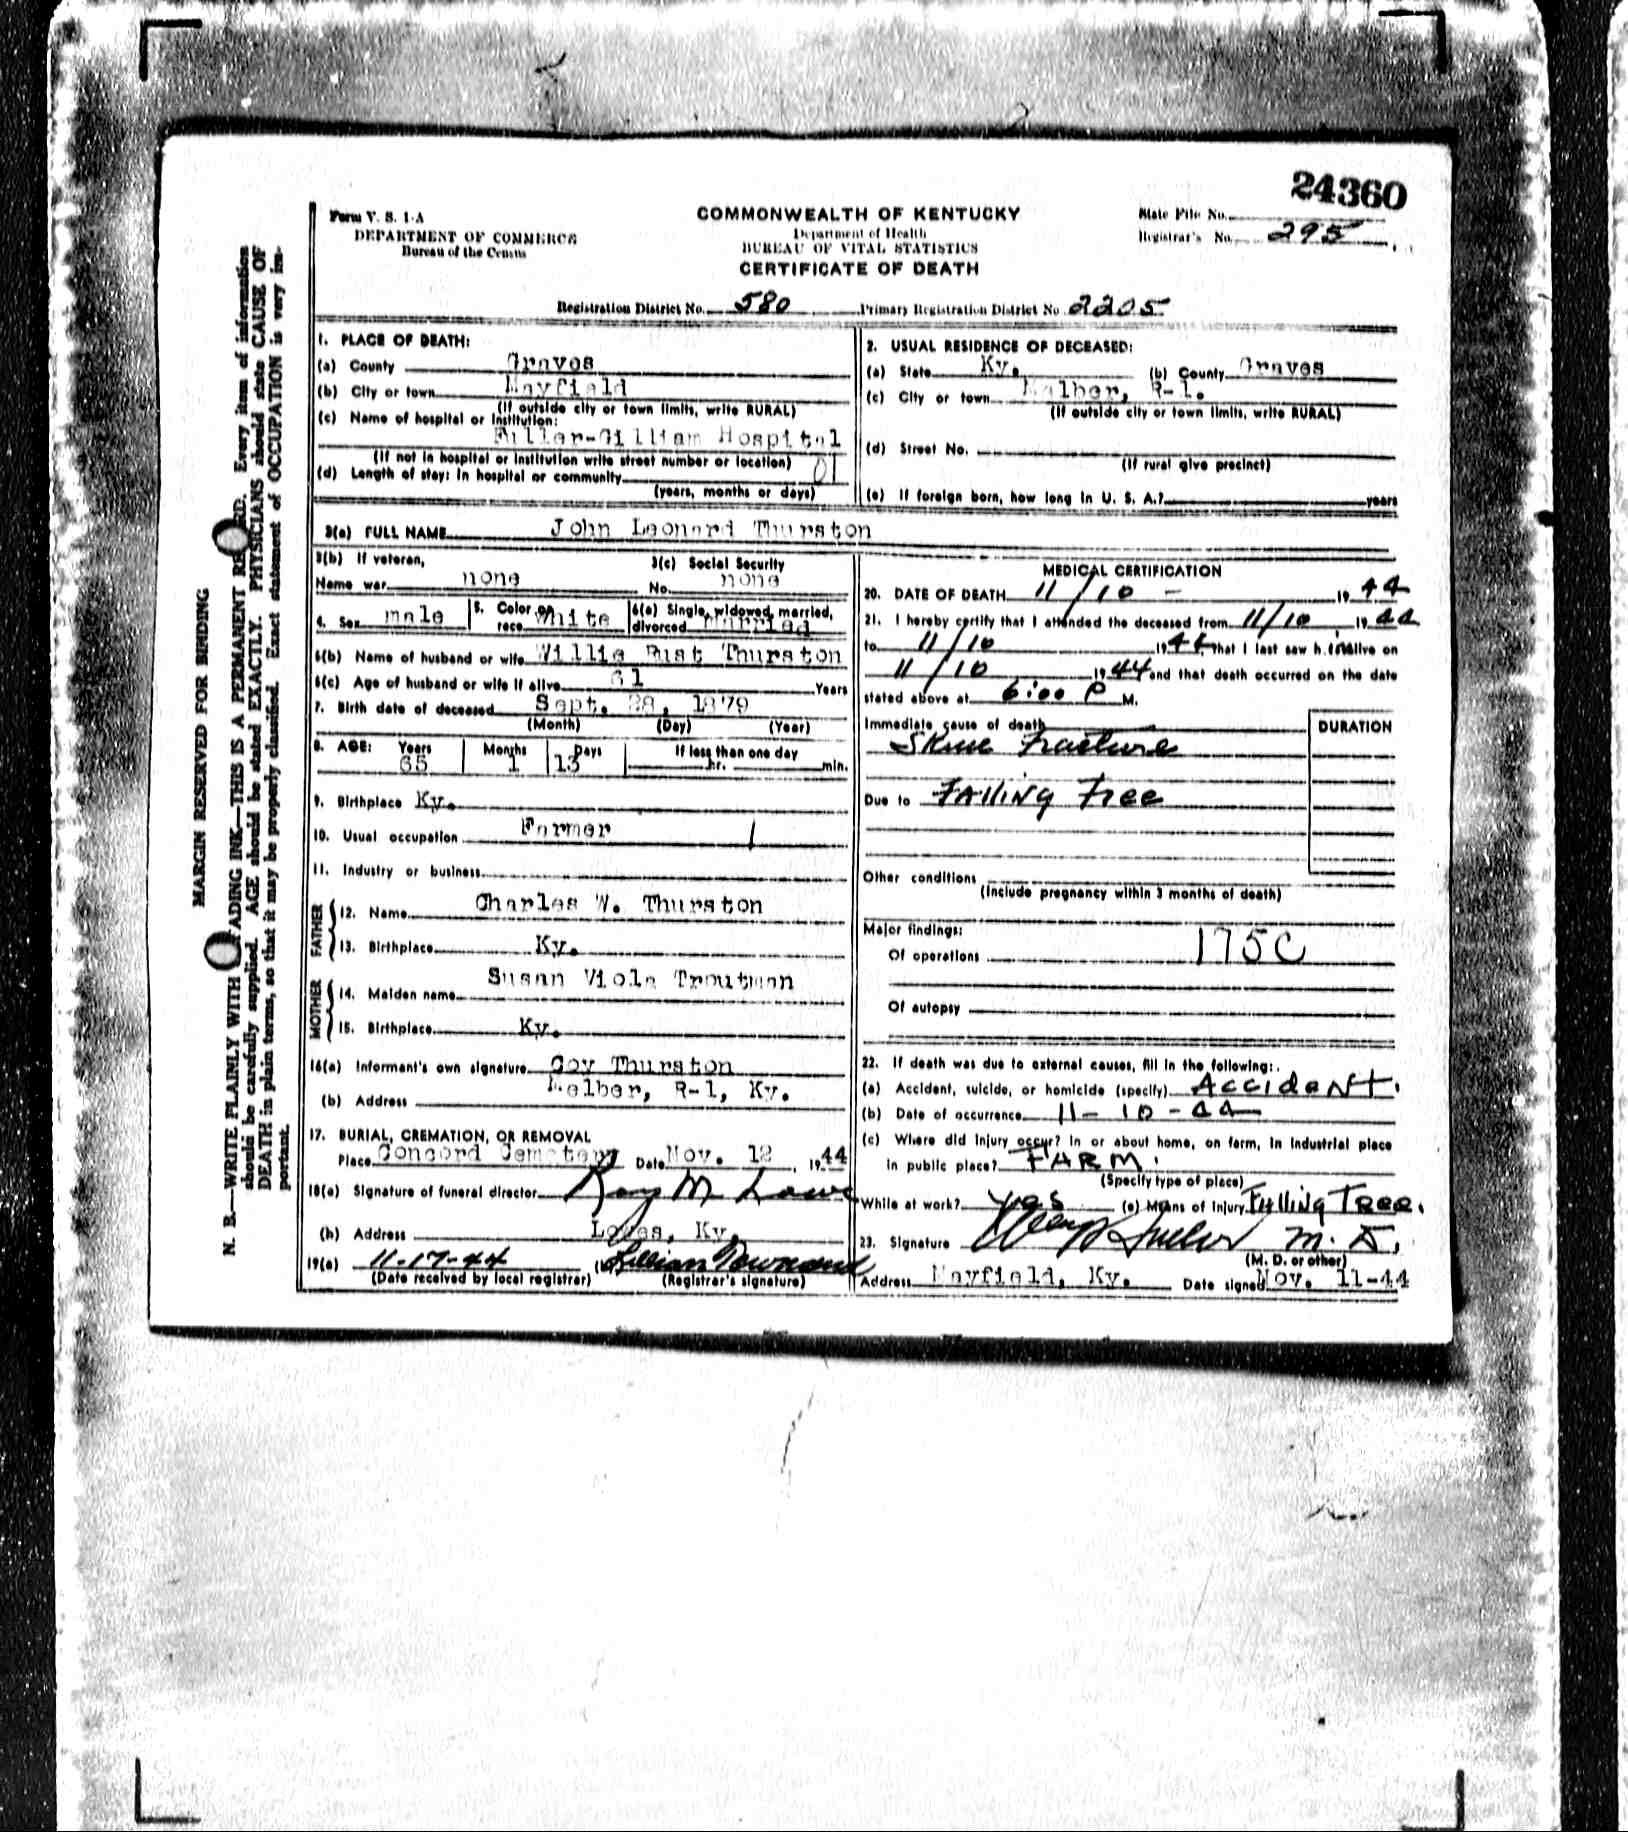 24360
Form V. S. 1-A
DEPARTMENT OF COMMERCE
Bureau of the Census
COMMONWEALTH OF KENTUCKY
Department of Health
BUREAU OF VITAL STATISTICS
CERTIFICATE OF DEATH
State File No.
Registrar's No. 295
Registration District No. 580 Primary Registration District No 2205
MARGIN RESERVED FOR BINDING
N. B.—WRITE PLAINLY WITH FADING INK—THIS IS A PERMANENT RE RD. Every item of information
should be carefully supplied. AGE should be stated EXACTLY. PHYSICIANS should state CAUSE OF
DEATH in plain terms, so that it may be properly classified. Exact statement of OCCUPATION is very im-
portant.
1. PLACE OF DEATH:
(a) County Graves
(b) City or town Mayfield
(If outside city or town limits, write RURAL)
(c) Name of hospital or institution:
Fuller-Gilliam Hospital
(If not in hospital or institution write street number or location)
(d) Length of stay: In hospital or community 01
(years, months or days)
2. USUAL RESIDENCE OF DECEASED:
(a) State Ky. (b) County Graves
(c) City or town Melber, R-1.
(If outside city or town limits, write RURAL)
(d) Street No.
(If rural give precinct)
(e) If foreign born, how long in U. S. A.? years
3(a) FULL NAME John Leonard Thurston
3(b) If veteran,
Name war none
3(c) Social Security
No. none
4. Sex male
5. Color or
race White
6(a) Single, widowed, married,
divorced Married
6(b) Name of husband or wife Willie Rust Thurston
6(c) Age of husband or wife if alive 61 Years
7. Birth date of deceased Sept. 28, 1879
(Month) (Day) (Year)
8. AGE: Years Months Days If less than one day
65 1 13 hr. min.
9. Birthplace Ky.
10. Usual occupation Farmer
11. Industry or business
FATHER
12. Name Charles W. Thurston
13. Birthplace Ky.
MOTHER
14. Maiden name Susan Viola Troutman
15. Birthplace Ky.
16(a) Informant's own signature Coy Thurston
(b) Address Melber, R-1, Ky.
17. BURIAL, CREMATION, OR REMOVAL
Place Concord Cemetery Date Nov. 12, 1944
18(a) Signature of funeral director Roy M Lowe
(b) Address Lowes, Ky.
19(a) 11-17-44 (b) Lillian
(Date received by local registrar) (Registrar's signature)
MEDICAL CERTIFICATION
20. DATE OF DEATH 11/10 - 1944
21. I hereby certify that I attended the deceased from 11/10, 1944
to 11/10 1944, that I last saw h.im alive on
11/10 1944 and that death occurred on the date
stated above at 6:00 P M.
Immediate cause of death
Skull Fracture
DURATION
Due to Falling Tree
Other conditions
(Include pregnancy within 3 months of death)
Major findings:
Of operations 175C
Of autopsy
22. If death was due to external causes, fill in the following:
(a) Accident, suicide, or homicide (specify) Accident.
(b) Date of occurrence 11-10-44
(c) Where did injury occur? In or about home, on farm, in industrial place
in public place? FARM.
(Specify type of place)
While at work? yes (e) Means of Injury Falling Tree.
23. Signature M. D.
(M. D. or other)
Address Mayfield, Ky. Date signed Nov. 11-44